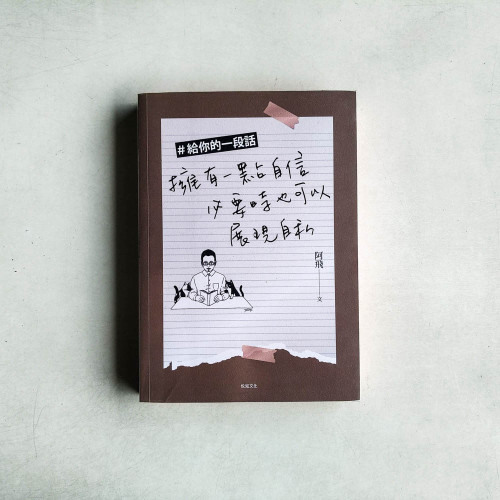 #給你的一段話
擁有一點自信
必要時也可以
展現自私
阿飛——文
悦知文化